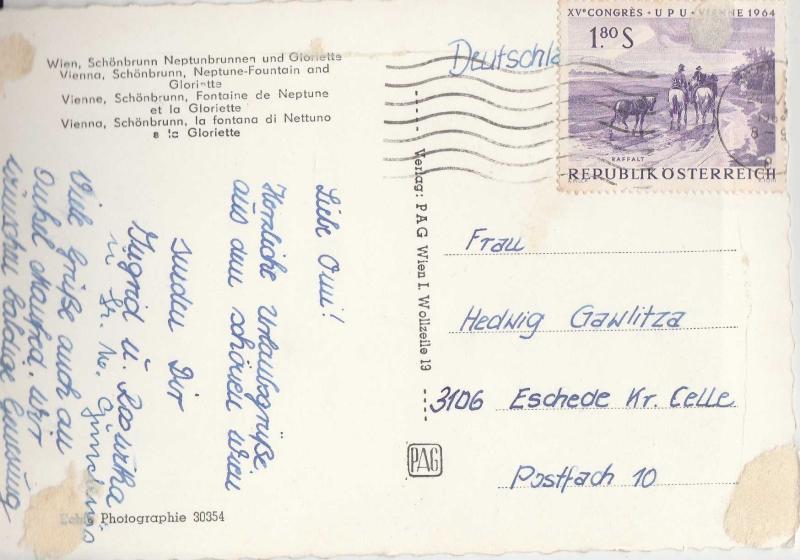 Wien, Schönbrunn Neptunbrunnen und Gloriette
Vienna, Schönbrunn, Neptune-Fountain and
Gloriette
Vienne, Schönbrunn, Fontaine de Neptune
et la Gloriette
Vienna, Schönbrunn, la fontana di Nettuno
e la Gloriette
Liebe Omi!
Herzliche Urlausgrüße
aus dem schönen Wien
senden Dir
Ingrid u.
Viele Grüße auch an
Onkel Manfred. Wir
wünschen baldige
Echte Photographie 30354
Verlag: PAG Wien I. Wollzeile 19
PAG
Deutschla
XVᵉ CONGRÈS · UPU · VIENNE 1964
1.80 S
RAFFALT
REPUBLIK ÖSTERREICH
Frau
Hedwig Gawlitza
3106 Eschede Kr. Celle
Postfach 10